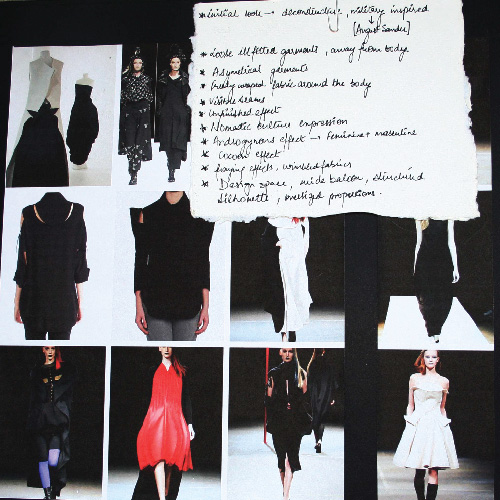 * Initial look → deconstructive, military inspired
[August Sander]
* Loose ill fitted garments, away from body
* Asymetical garments
* fabric around the body
* Visible seams
* Unfinished effect
* Nomadic culture expression
* Androgynous effect → Feminine + masculine
* Cocoon effect
* Fraying effects, wrinkled fabrics
* Design space, wide balloon, structured
silhouette, proportions.